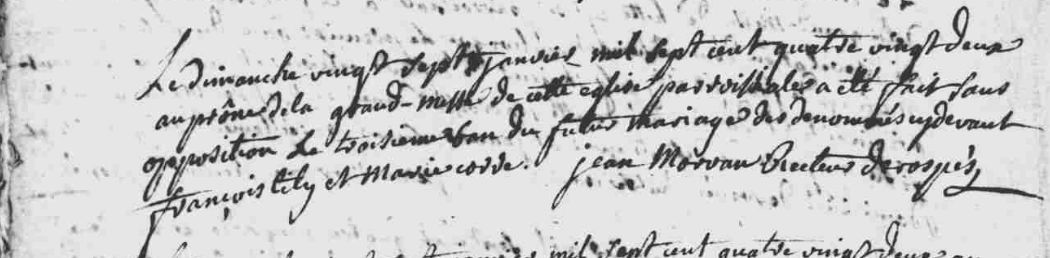 Le dimanche vingt sept janvier mil sept cent quatre vingt deux
au prône de la grand-messe de cette eglise parroissiale a eté fait sans
opposition le troisieme ban du futur mariage des denommés cydevant
françois tily et Marie corre. jean Morvan Recteur de rospés
mil sept cent quatre vingt deux au